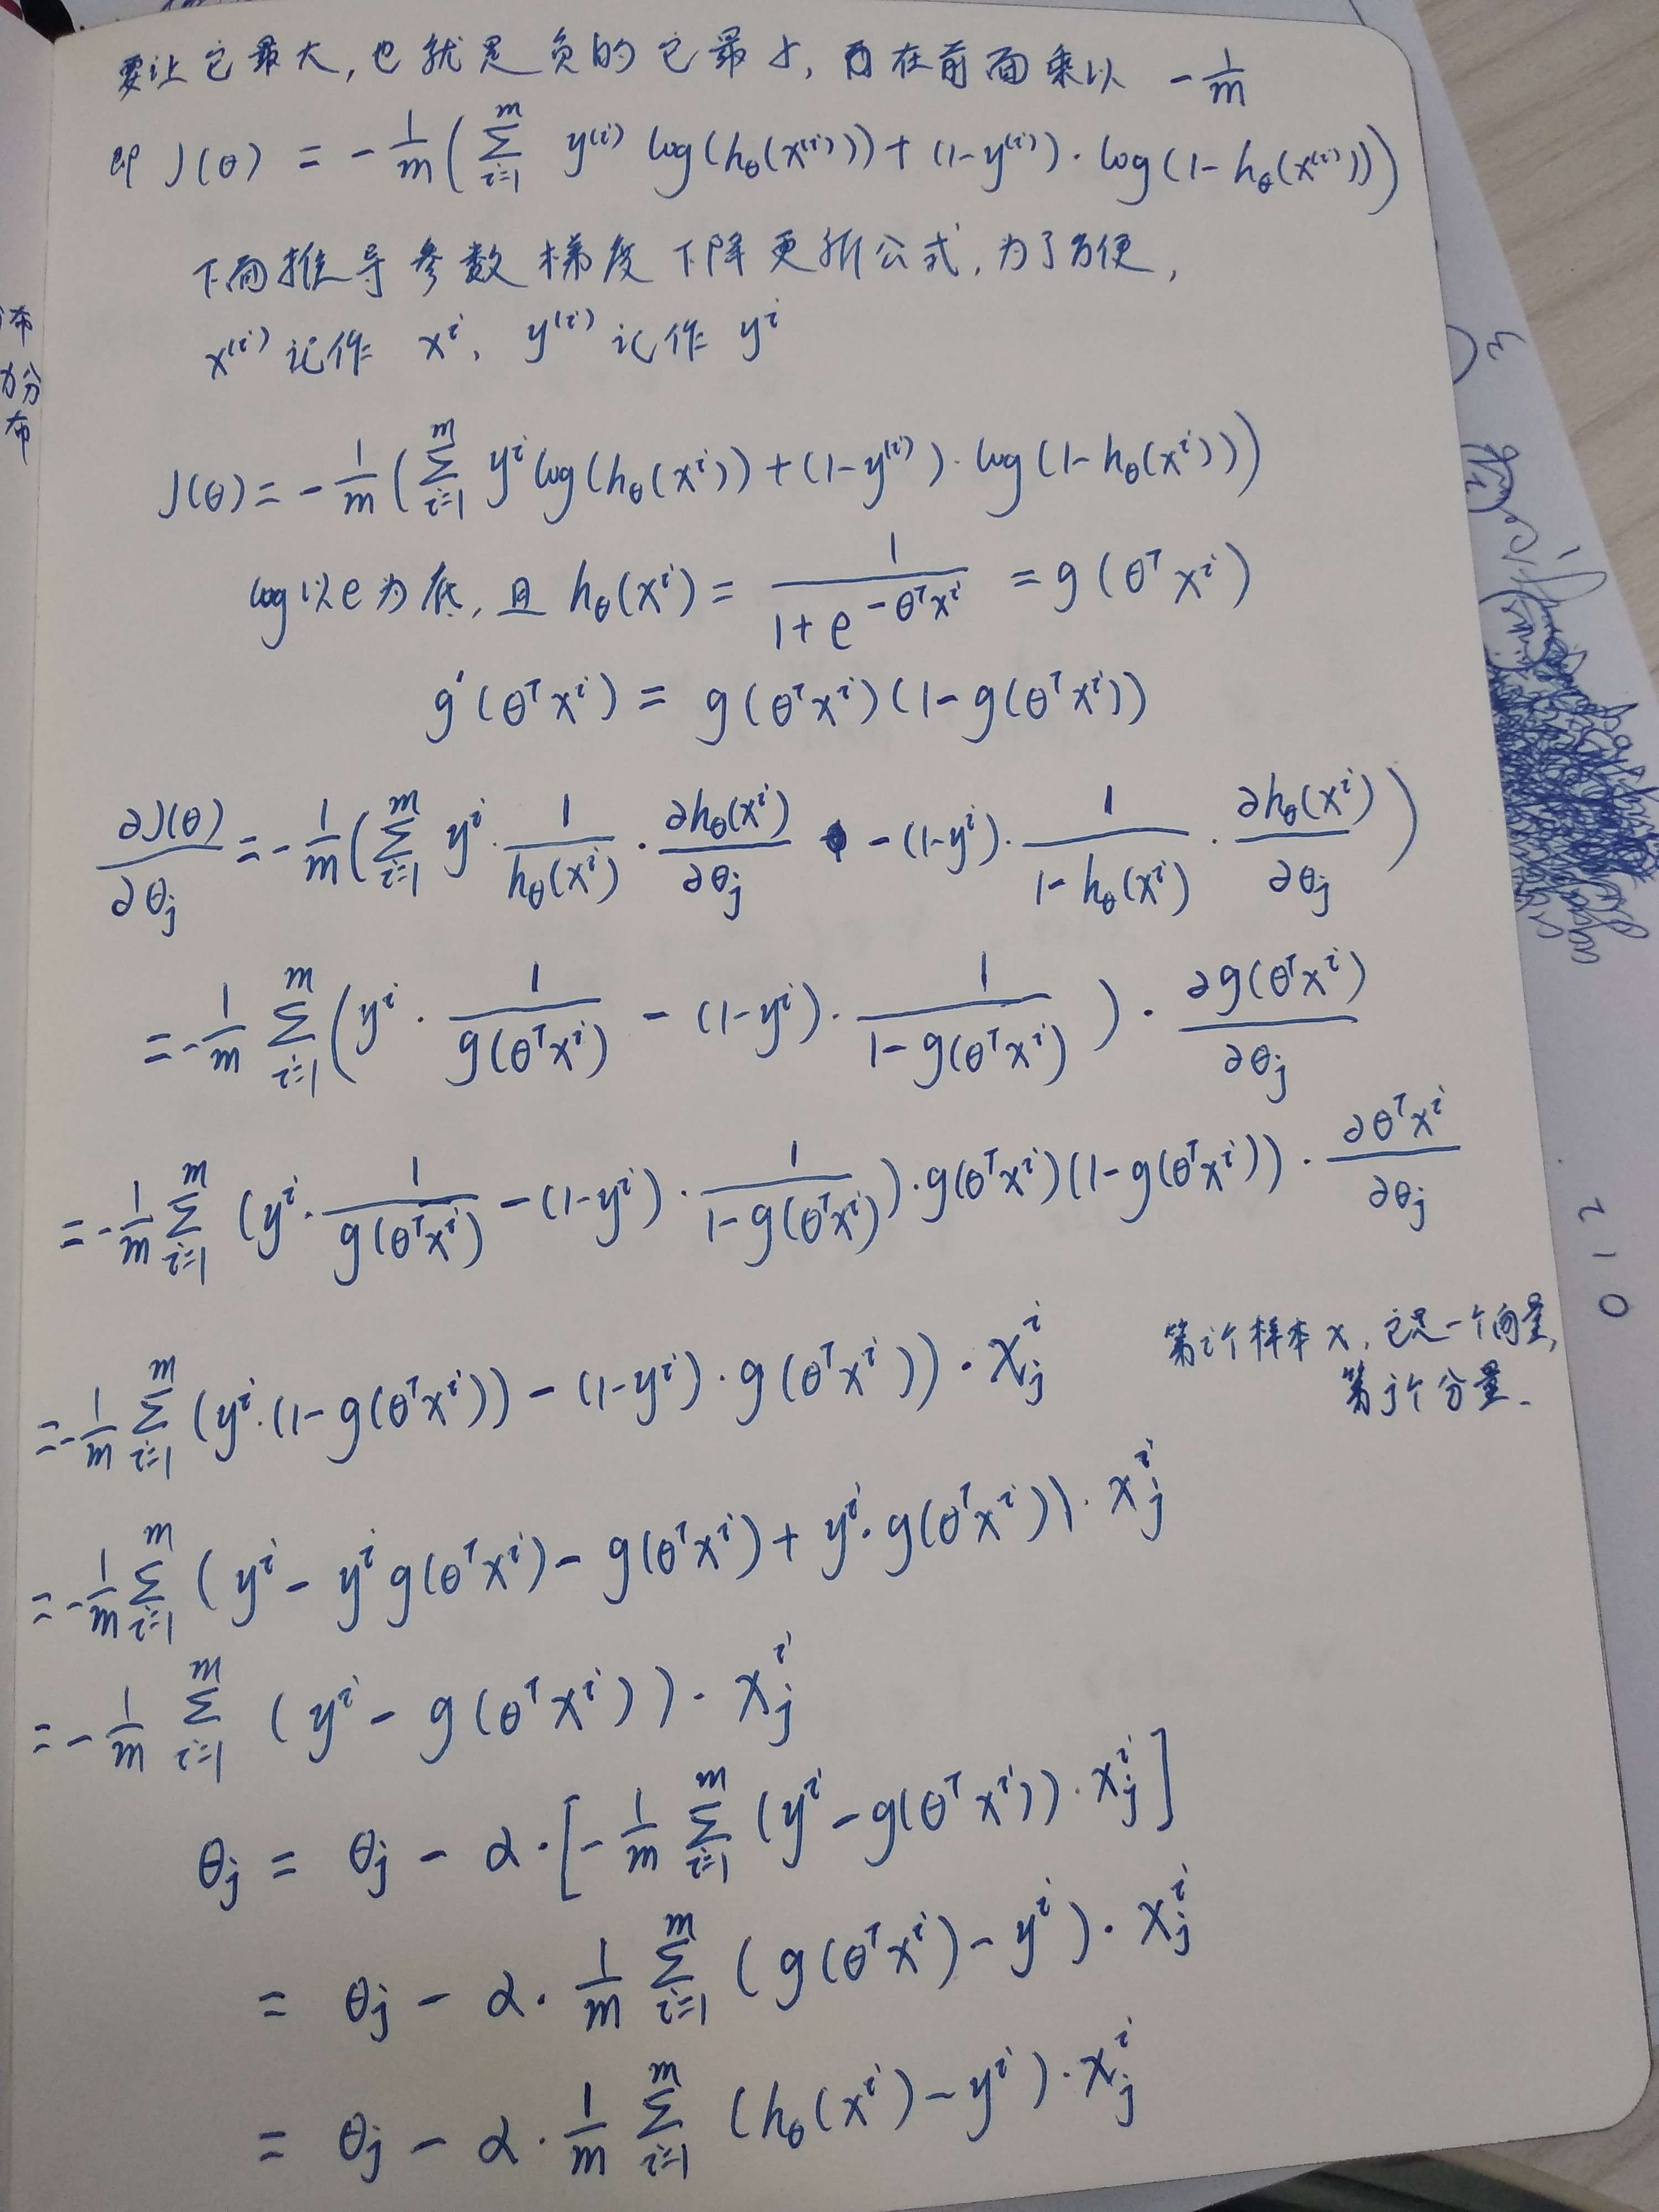 要让它最大,也就是负的它最小,再在前面乘以 -1/m
即 J(θ) = -1/m (∑_{i=1}^{m} y^{(i)} log(h_θ(x^{(i)})) + (1-y^{(i)})·log(1-h_θ(x^{(i)})))
下面推导参数梯度下降更新公式,为了方便,
x^{(i)} 记作 x^i, y^{(i)} 记作 y^i
J(θ) = -1/m (∑_{i=1}^{m} y^i log(h_θ(x^i)) + (1-y^{(i)})·log(1-h_θ(x^i)))
log以e为底,且 h_θ(x^i) = 1/(1+e^{-θ^T x^i}) = g(θ^T x^i)
g'(θ^T x^i) = g(θ^T x^i)(1-g(θ^T x^i))
∂J(θ)/∂θ_j = -1/m (∑_{i=1}^{m} y^i · 1/h_θ(x^i) · ∂h_θ(x^i)/∂θ_j - (1-y^i)· 1/(1-h_θ(x^i)) · ∂h_θ(x^i)/∂θ_j)
= -1/m ∑_{i=1}^{m} (y^i · 1/g(θ^T x^i) - (1-y^i)· 1/(1-g(θ^T x^i))) · ∂g(θ^T x^i)/∂θ_j
= -1/m ∑_{i=1}^{m} (y^i · 1/g(θ^T x^i) - (1-y^i) · 1/(1-g(θ^T x^i)))·g(θ^T x^i)(1-g(θ^T x^i)) · ∂θ^T x^i/∂θ_j
= -1/m ∑_{i=1}^{m} (y^i·(1-g(θ^T x^i)) - (1-y^i)·g(θ^T x^i))·x_j^i
第i个样本x,它是一个向量,
第j个分量.
= -1/m ∑_{i=1}^{m} (y^i - y^i g(θ^T x^i) - g(θ^T x^i) + y^i·g(θ^T x^i))·x_j^i
= -1/m ∑_{i=1}^{m} (y^i - g(θ^T x^i))·x_j^i
θ_j = θ_j - α·[-1/m ∑_{i=1}^{m} (y^i - g(θ^T x^i))·x_j^i]
= θ_j - α· 1/m ∑_{i=1}^{m} (g(θ^T x^i) - y^i)·x_j^i
= θ_j - α· 1/m ∑_{i=1}^{m} (h_θ(x^i) - y^i)·x_j^i
布
分
布
2 1 0